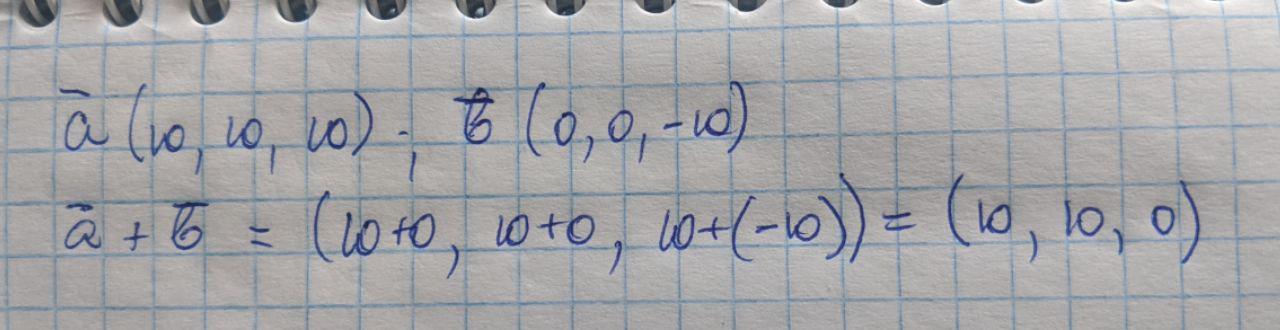 a̅ (10, 10, 10) ; b̅ (0, 0, -10)
a̅ + b̅ = (10+0, 10+0, 10+(-10)) = (10, 10, 0)